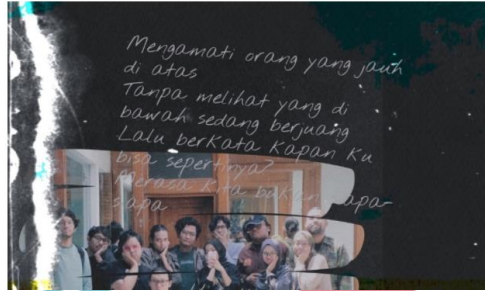 Mengamati orang yang jauh
di atas
Tanpa melihat yang di
bawah sedang berjuang
Lalu berkata kapan ku
bisa sepertinya?
Merasa kita bukan apa-
siapa